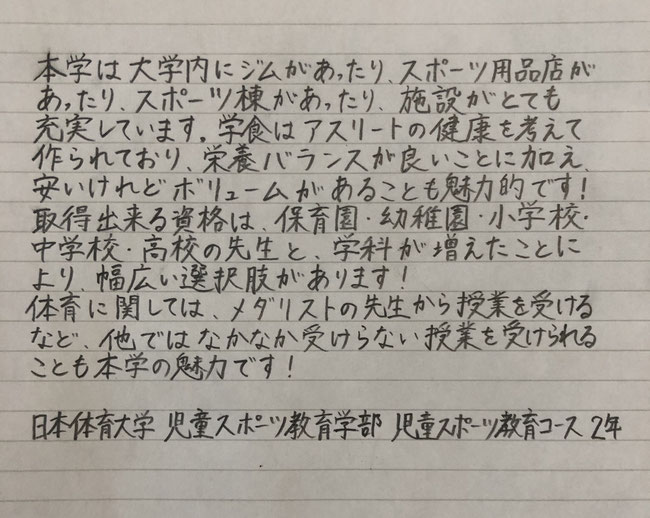 本学は大学内にジムがあったり、スポーツ用品店が
あったり、スポーツ棟があったり、施設がとても
充実しています。学食はアスリートの健康を考えて
作られており、栄養バランスが良いことに加え、
安いけれどボリュームがあることも魅力的です!
取得出来る資格は、保育園・幼稚園・小学校・
中学校・高校の先生と、学科が増えたことに
より、幅広い選択肢があります!
体育に関しては、メダリストの先生から授業を受ける
など、他ではなかなか受けらない授業を受けられる
ことも本学の魅力です!
日本体育大学 児童スポーツ教育学部 児童スポーツ教育コース 2年